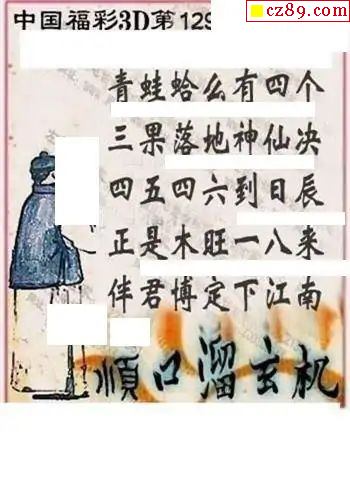 中国福彩3D第129
cz89.com
青蛙蛤么有四个
三果落地神仙决
四五四六到日辰
正是木旺一八来
伴君博定下江南
顺口溜玄机